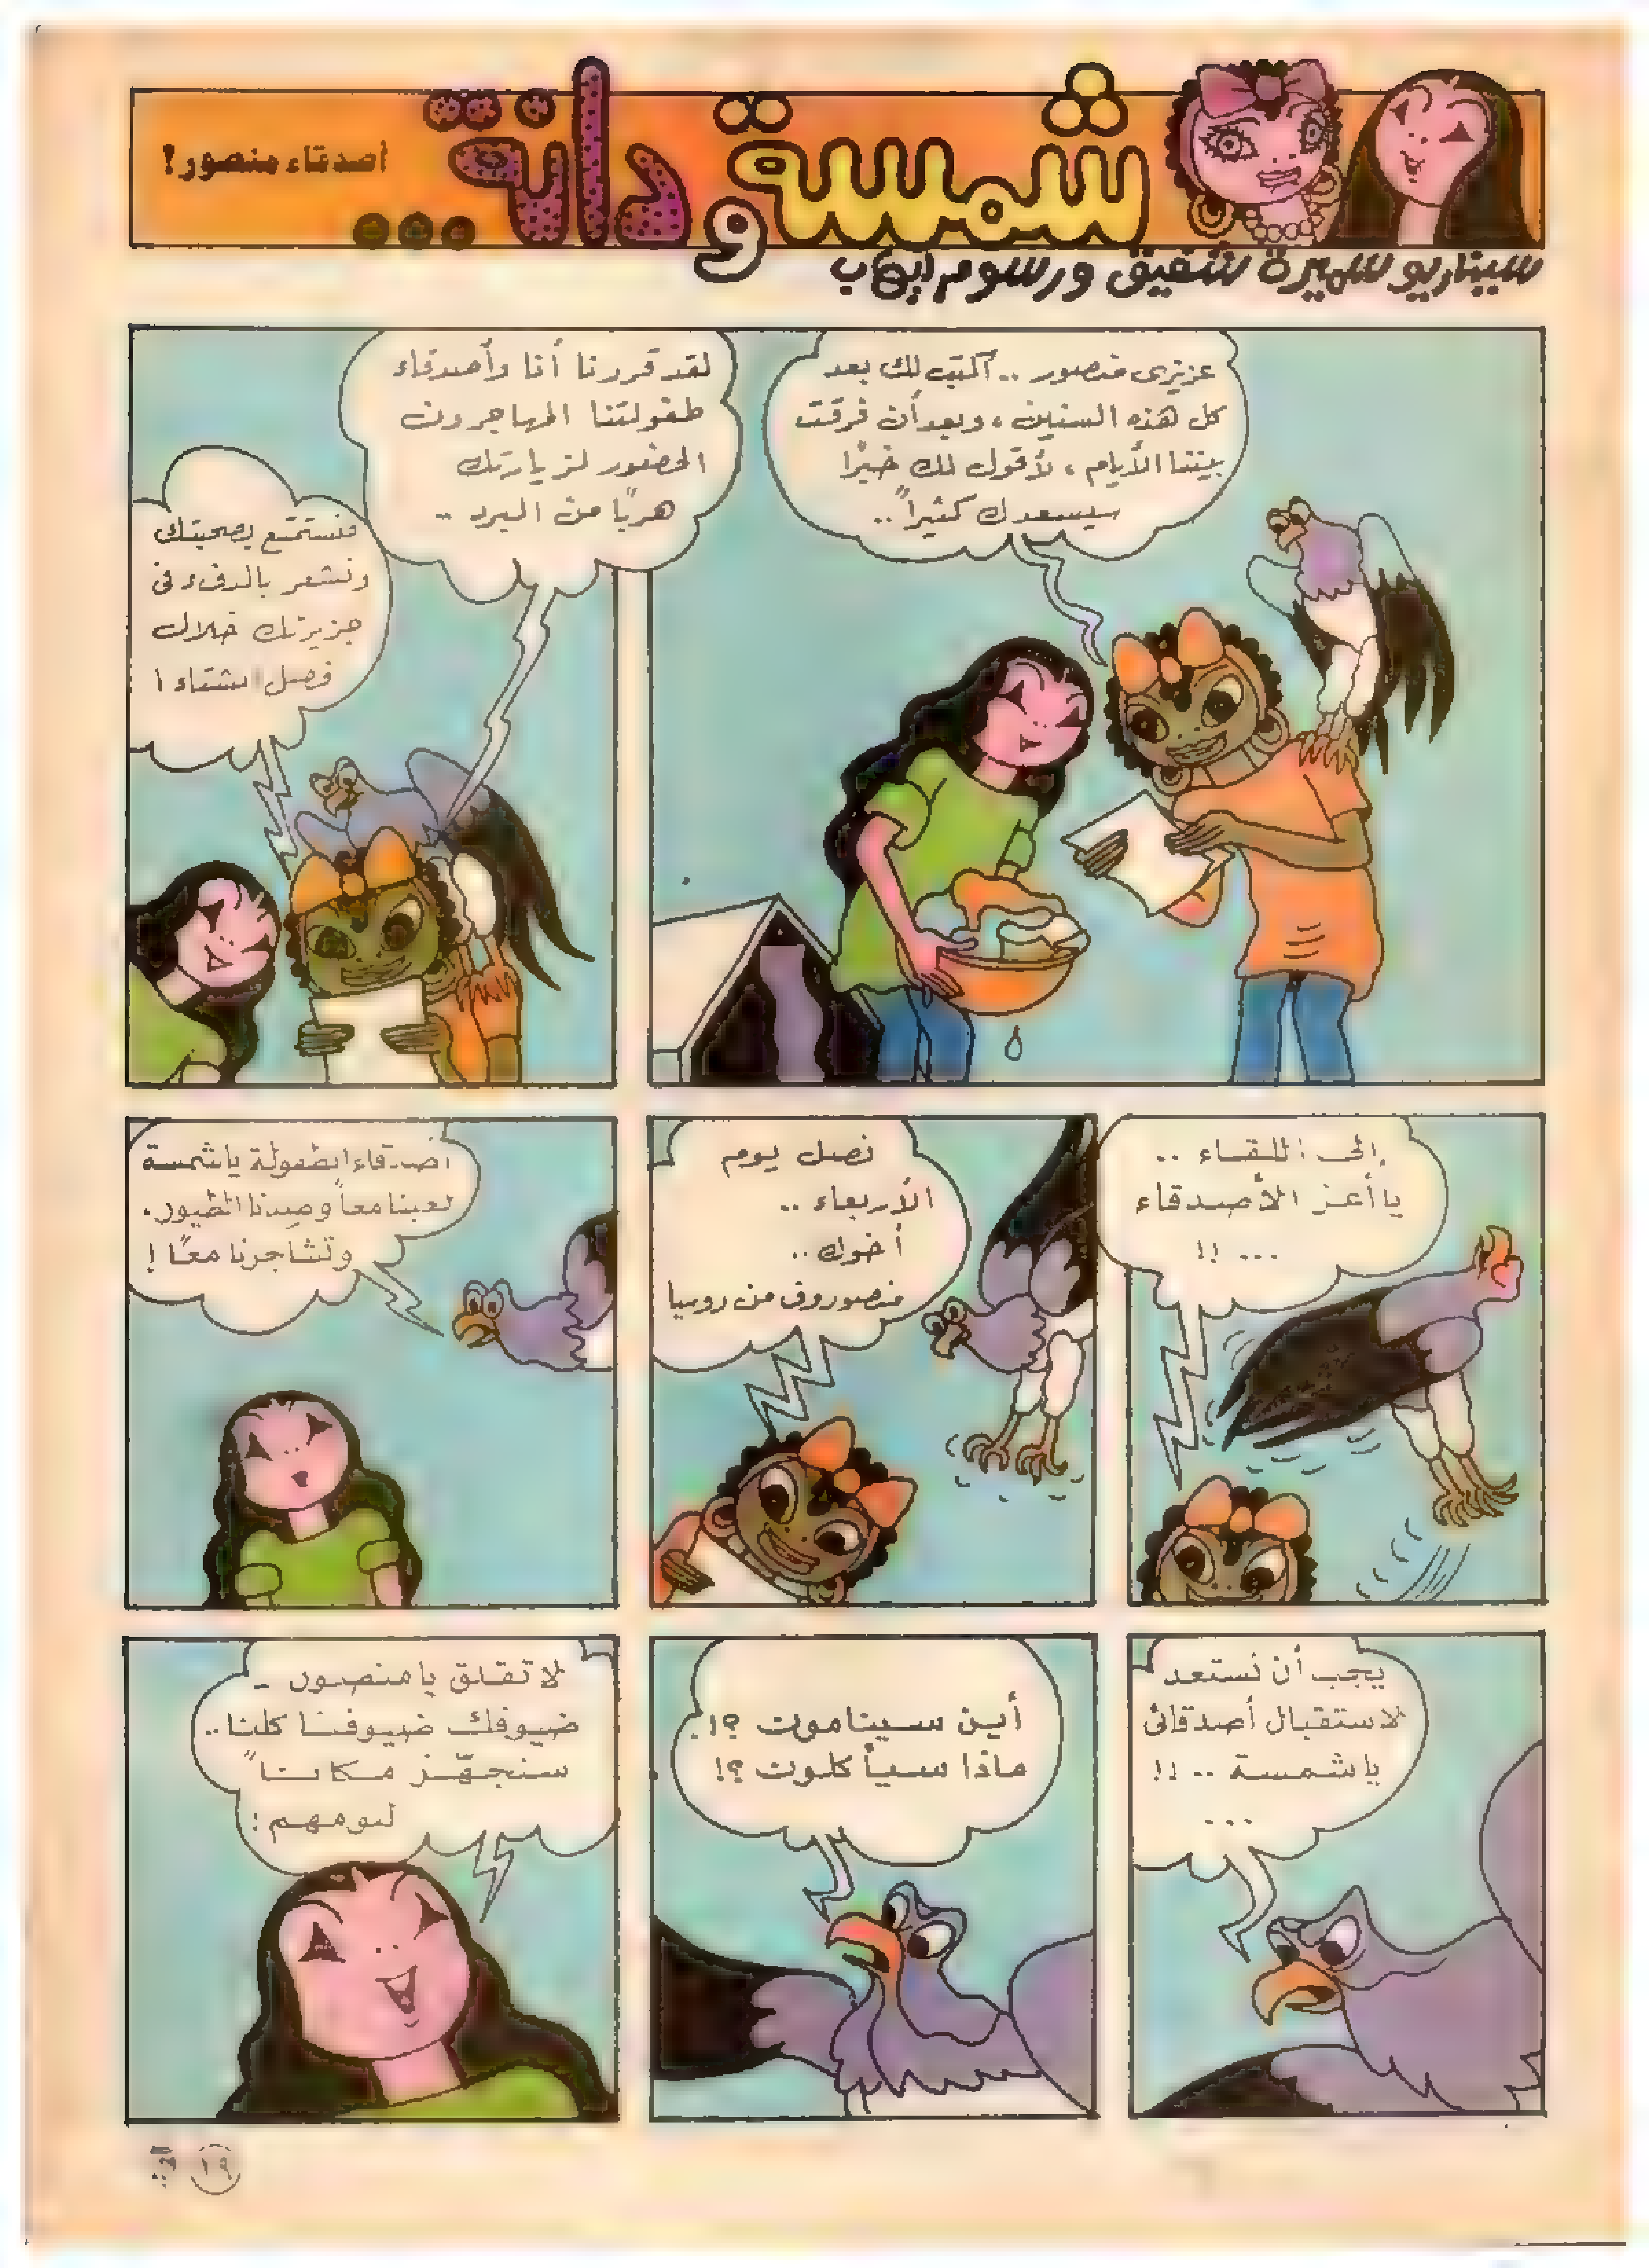 شمسة ودانة...
أصدقاء منصور؟
سيناريو سميرة شفيق ورسوم إيهاب
عزيزى منصور .. أكتب لك بعد
كل هذه السنين، وبعد أن فرقت
بيننا الأيام، لأقول لك خبرًا
سيسعدك كثيراً ..
لقد قررنا أنا وأصدقاء
طفولتنا المهاجرون
الحضور لزيارتك
هربًا من البرد ..
فنستمتع بصحبتك
ونشعر بالدفء فى
جزيرتك خلال
فصل الشتاء !
إلى اللقاء ..
يا أعز الأصدقاء
... !!
نصل يوم
الأربعاء ..
أخوك ..
منصوروف من روسيا
أصدقاء الطفولة يا شمسة
لعبنا معاً وصدنا الطيور.
وتشاجرنا معًا !
يجب أن نستعد
لاستقبال أصدقائى
يا شمسة .. !!
...
أين سيناموت ؟!
ماذا سيأكلوت ؟!
لا تقلق يا منصور -
ضيوفك ضيوفنا كلنا ..
سنجهّز مكاناً
لنومهم :
١٩